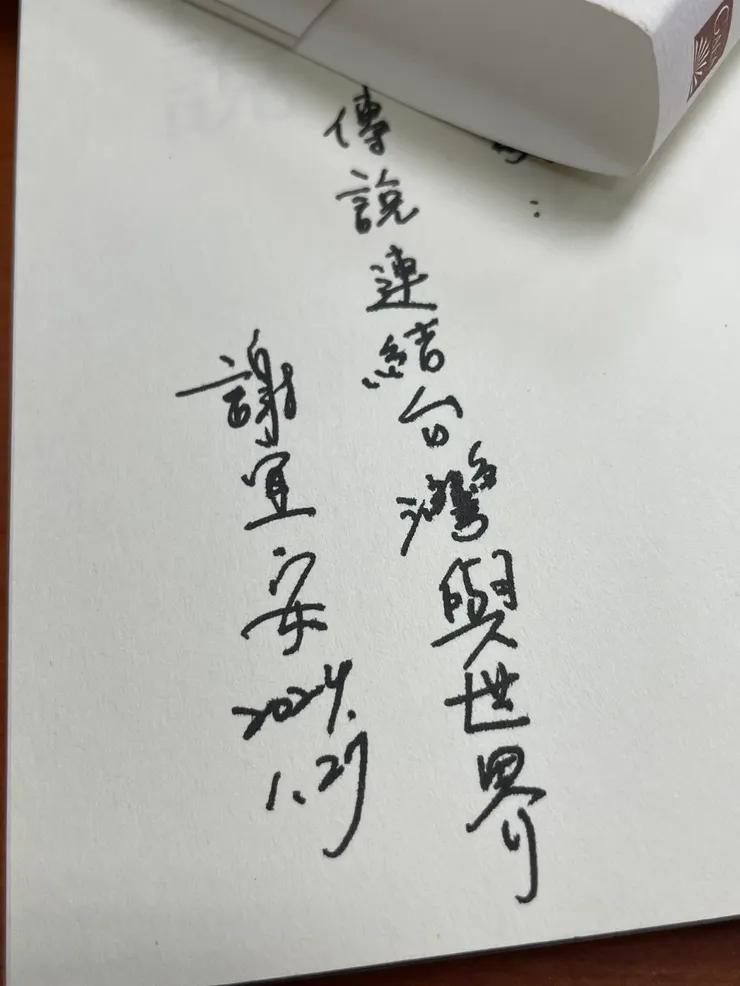 ：
傳說連結台灣與世界
謝宜安
2024.
1.27